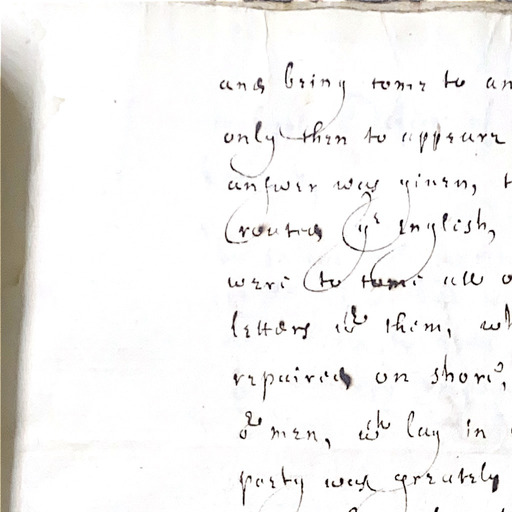 and being come to an
only then to appeare
answer was giuen, t
(routed yᵉ English,
were to come all o
letters wᵗʰ them, wh
repaired on shore,
oʳ men, wᶜʰ lay in
party was greately